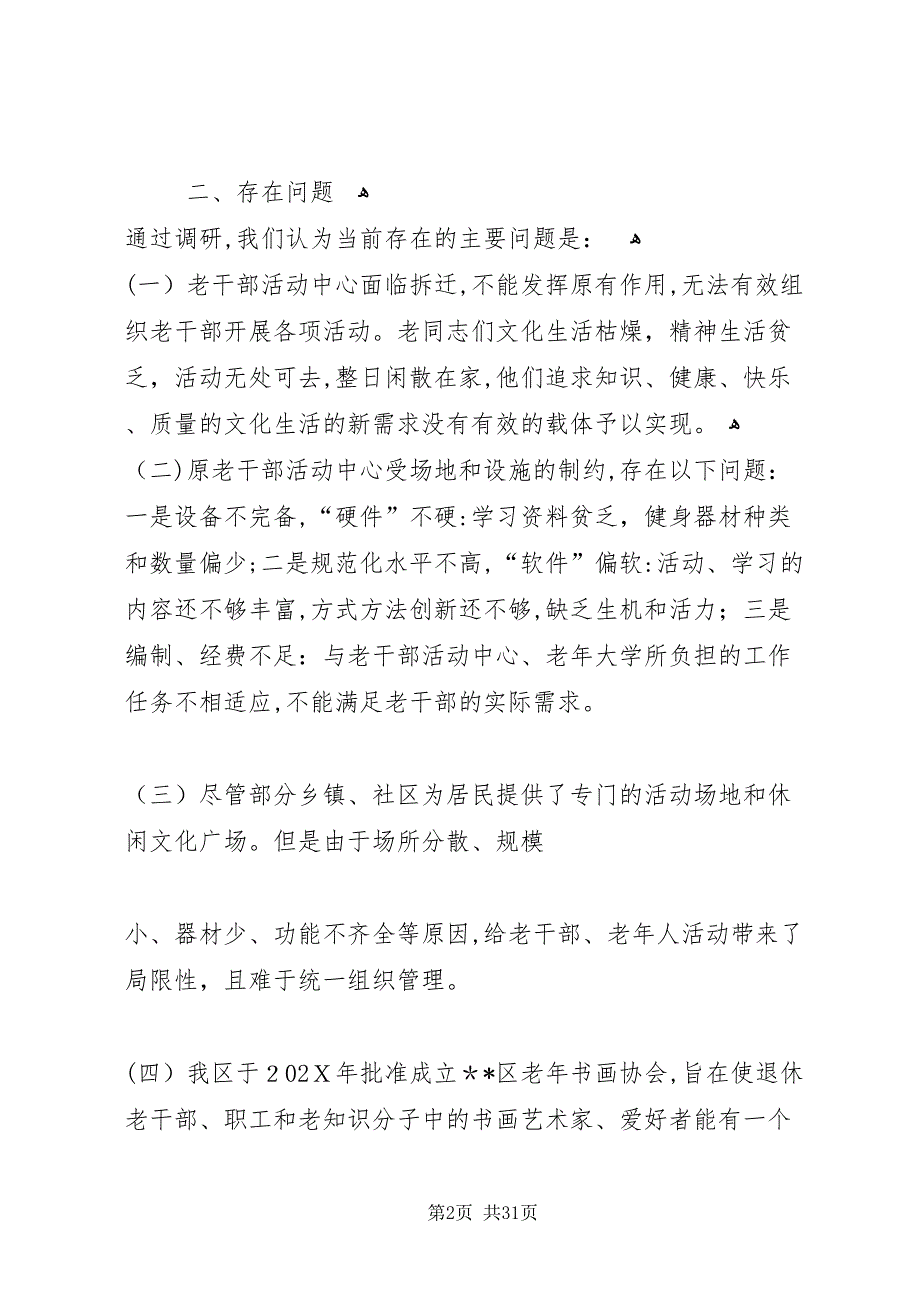 二、存在问题 ﻫ
通过调研,我们认为当前存在的主要问题是： ﻫ
(一）老干部活动中心面临拆迁,不能发挥原有作用,无法有效组
织老干部开展各项活动。老同志们文化生活枯燥，精神生活贫
乏，活动无处可去,整日闲散在家,他们追求知识、健康、快乐
、质量的文化生活的新需求没有有效的载体予以实现。 ﻫ
（二)原老干部活动中心受场地和设施的制约,存在以下问题：
一是设备不完备,“硬件”不硬:学习资料贫乏，健身器材种类
和数量偏少;二是规范化水平不高,“软件”偏软:活动、学习的
内容还不够丰富,方式方法创新还不够,缺乏生机和活力；三是
编制、经费不足：与老干部活动中心、老年大学所负担的工作
任务不相适应,不能满足老干部的实际需求。
（三）尽管部分乡镇、社区为居民提供了专门的活动场地和休
闲文化广场。但是由于场所分散、规模
小、器材少、功能不齐全等原因,给老干部、老年人活动带来了
局限性，且难于统一组织管理。
(四）我区于２02Ｘ年批准成立＊*区老年书画协会,旨在使退休
老干部、职工和老知识分子中的书画艺术家、爱好者能有一个
第2页 共31页